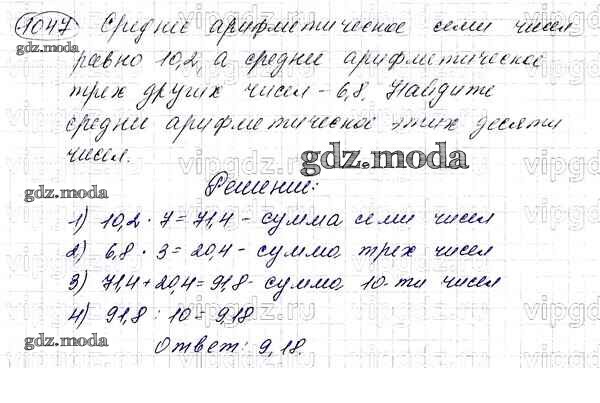 1047 Среднее арифметическое семи чисел
gdz.moda
равно 10,2, а среднее арифметическое
трех других чисел - 6,8. Найдите
среднее арифметическое этих десяти
чисел.
gdz.moda
gdz.moda
Решение:
1) 10,2 · 7 = 71,4 - сумма семи чисел
2) 6,8 · 3 = 20,4 - сумма трех чисел
gdz.moda
3) 71,4 + 20,4 = 91,8 - сумма 10-ти чисел
4) 91,8 : 10 = 9,18
gdz.moda
Ответ: 9,18.